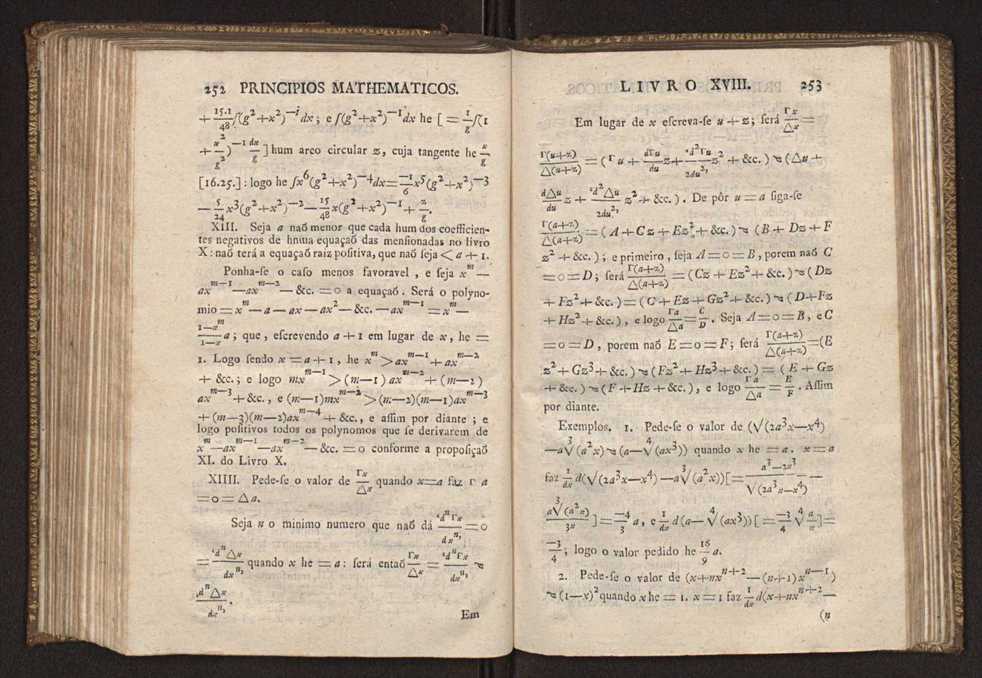 252 PRINCIPIOS MATHEMATICOS.
+ 15.1/48 ∫(g²+x²)^—¹dx; e ∫(g²+x²)^—¹dx he [= 1/g ∫(1
+ x²/g²)^—1 dx/g] hum arco circular z, cuja tangente he x/g
[16.25.]: logo he ∫x⁶(g²+x²)^—4dx = —1/6 x⁵(g²+x²)^—3
— 5/24 x³(g²+x²)^—2 — 15/48 x(g²+x²)^—1 + z/g.
XIII. Seja a naõ menor que cada hum dos coefficien-
tes negativos de huma equaçaõ das mensionadas no livro
X: naõ terá a equaçaõ raiz positiva, que naõ seja < a + 1.
Ponha-se o caso menos favoravel, e seja x^m —
ax^m—1 —ax^m—2 — &c. = 0 a equaçaõ. Será o polyno-
mio = x^m — a — ax — ax² — &c. — ax^m—1 = x^m —
1—x^m/1—x a; que, escrevendo a + 1 em lugar de x, he =
1. Logo sendo x = a + 1, he x^m > ax^m—1 + ax^m—2
+ &c.; e logo mx^m—1 > (m—1) ax^m—2 + (m—2)
ax^m—3 + &c., e (m—1)mx^m—2 > (m—2)(m—1)ax^m—3
+ (m—3)(m—2)ax^m—4 + &c., e assim por diante; e
logo positivos todos os polynomos que se derivarem de
x^m —ax^m—1 —ax^m—2 — &c. = 0 conforme a proposiçaõ
XI. do Livro X.
XIIII. Pede-se o valor de Γx/△x quando x=a faz Γ a
= 0 = △ a.
Seja n o minimo numero que naõ dá 'd^nΓx/dx^n, = 0
= 'd^n△x/dx^n, quando x he = a: será entaõ Γx/△x = 'd^nΓx/dx^n, ≈
'd^n△x/dx^n,.
Em
LIVRO XVIII. 253
Em lugar de x escreva-se u + z; será Γx/△x =
Γ(u+z)/△(u+z) = (Γu + dΓu/du z + 'd²Γu/2du², z² + &c.) ≈ (△u +
d△u/du z + 'd²△u/2du², z² + &c.). De pôr u = a siga-se
Γ(a+z)/△(a+z) = (A + Cz + Ez² + &c.) ≈ (B + Dz + F
z² + &c.); e primeiro, seja A = 0 = B, porem naõ C
= 0 = D; será Γ(a+z)/△(a+z) = (Cz + Ez² + &c.) ≈ (Dz
+ Fz² + &c.) = (C + Ez + Gz² + &c.) ≈ (D + Fz
+ Hz² + &c.), e logo Γa/△a = C/D. Seja A = 0 = B, e C
= 0 = D, porem naõ E = 0 = F; será Γ(a+z)/△(a+z) = (E
z² + Gz³ + &c.) ≈ (Fz² + Hz³ + &c.) = (E + Gz
+ &c.) ≈ (F + Hz + &c.), e logo Γa/△a = E/F. Assim
por diante.
Exemplos. 1. Pede-se o valor de (√(2a³x—x⁴)
—a∛(a²x) ≈ (a—∜(ax³)) quando x he = a. x = a
faz 1/dx d(√(2a³x—x⁴) —a∛(a²x)) [= a³—2x³/√(2a³x—x⁴) —
a∛(a²x)/3x] = —4/3 a, e 1/dx d(a—∜(ax³)) [= —3/4 ∜ a/x] =
—3/4; logo o valor pedido he 16/9 a.
2. Pede-se o valor de (x+nx^n+2 — (n+1)x^n—1)
≈ (1—x)² quando x he = 1. x = 1 faz 1/dx d(x+nx^n+2 —
(n